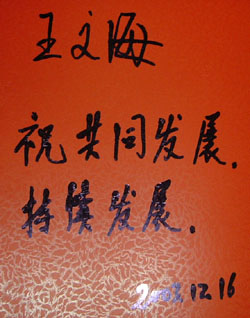 王文海
祝共同发展.
持续发展.
12.16